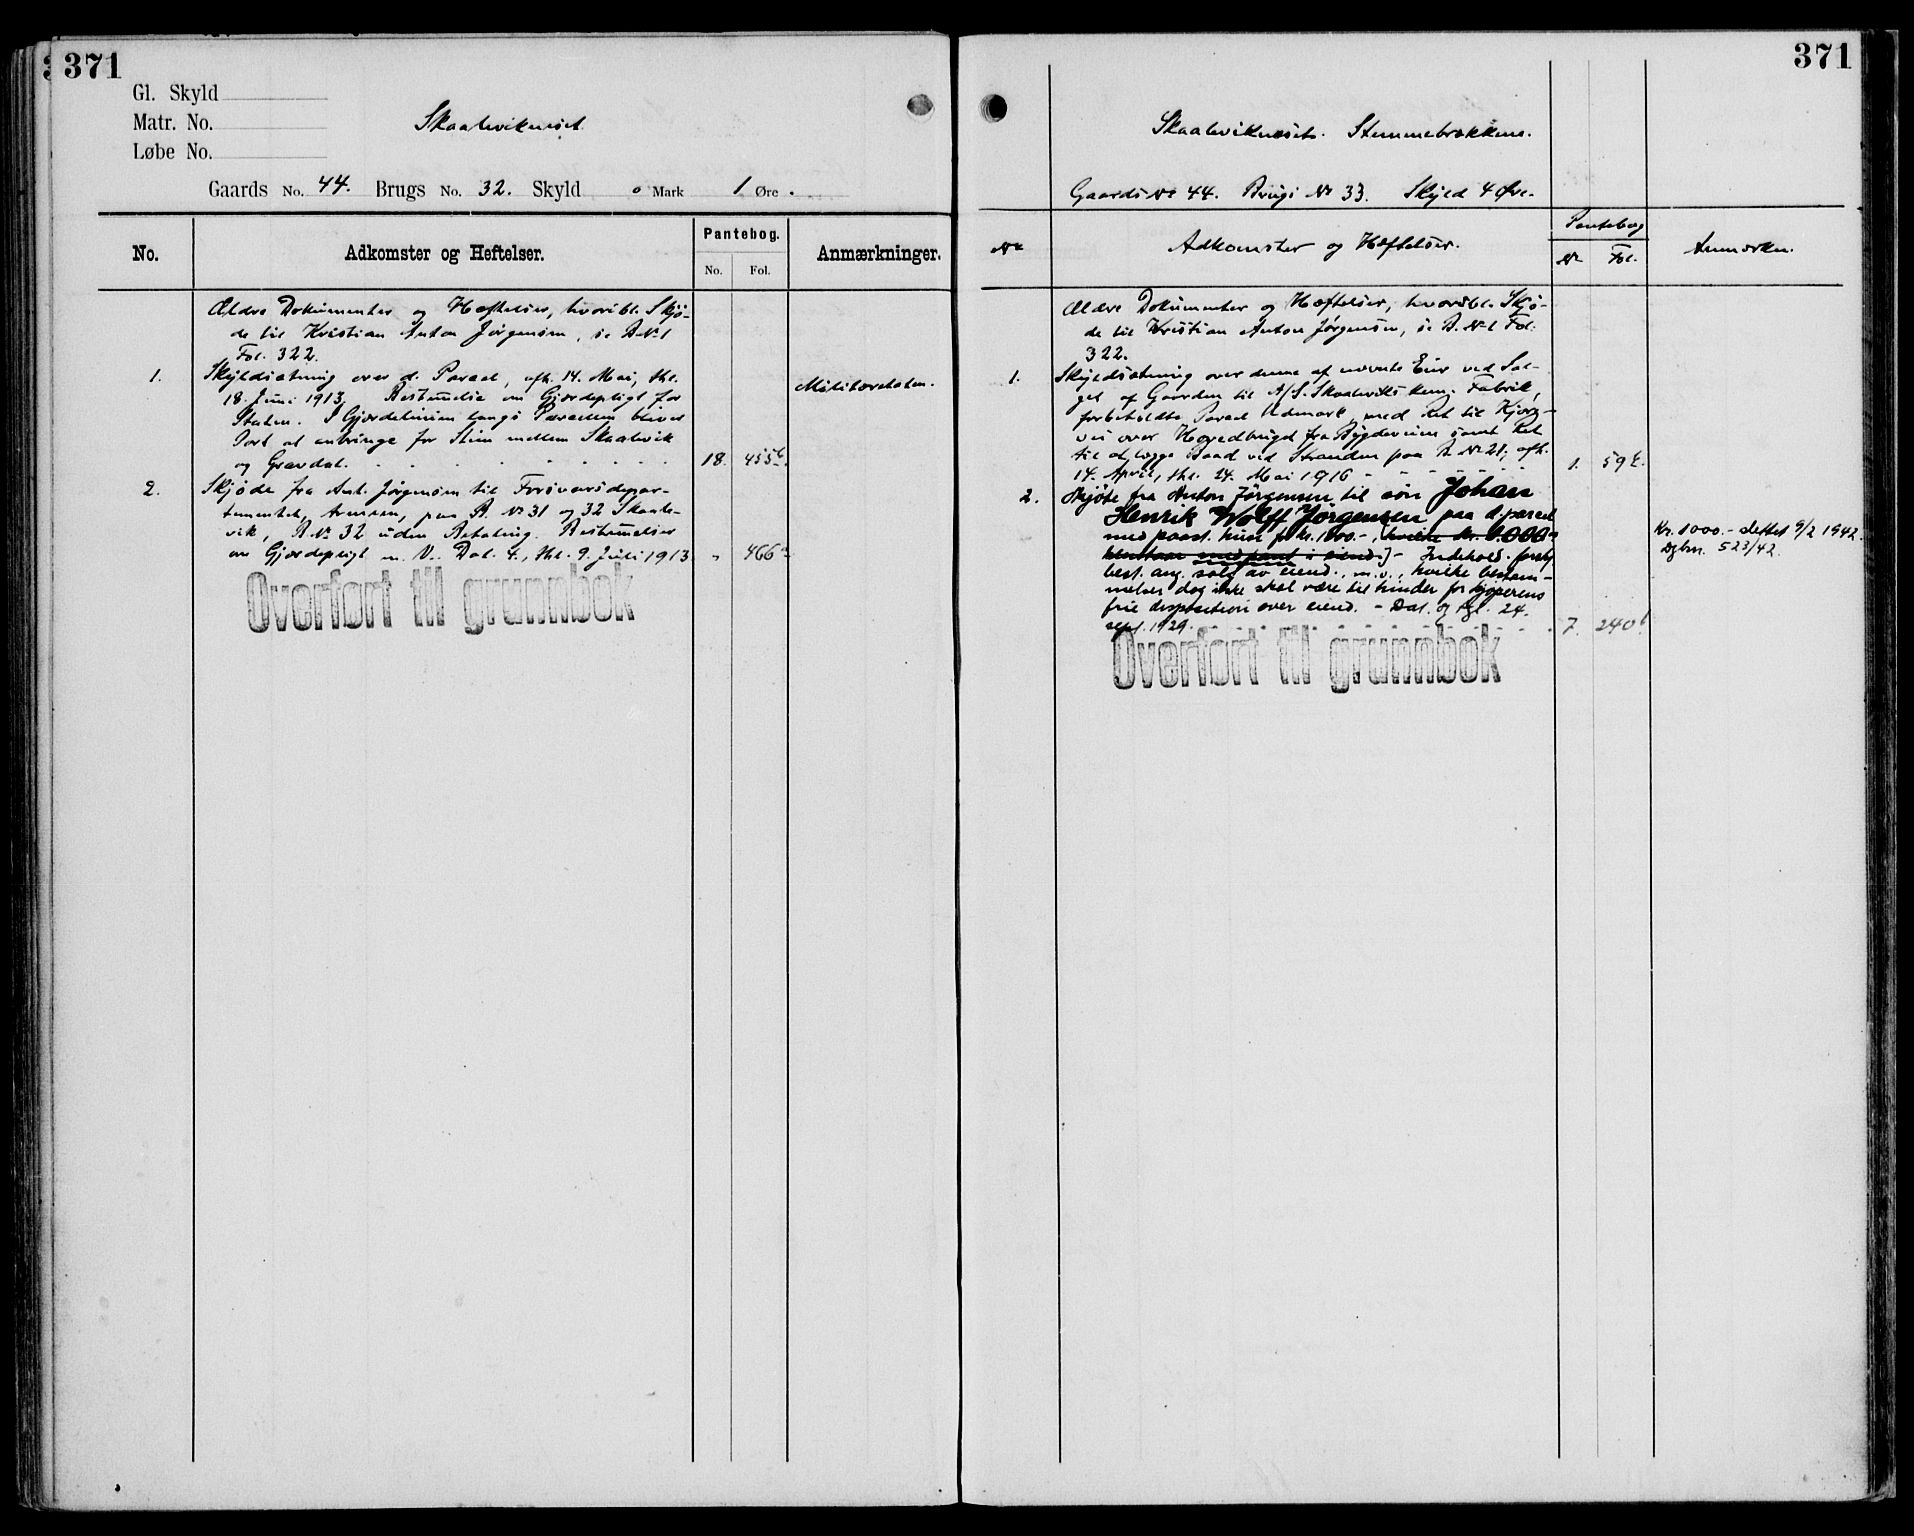 371
Gl. Skyld
Matr. No.
Løbe No.
Skaaleviknæset
Gaards No. 44. Brugs No. 32. Skyld 0 Mark 1 Øre.
No. Adkomster og Heftelser. Pantebog. No. Fol. Anmærkninger.
Ældre Dokumenter og Hæftelser, hvoribl. Skjø-
de til Kristian Anton Jørgensen, se B.No 1
Fol. 322.
1. Skyldsætning over d. Parcel, afh. 14. Mai, thl.
Militæretaten.
18. Juni 1913. Bestemmelse om Gjerdepligt for
Staten. I Gjerdelinien langs Parcellen bliver
Port at anbringe for Stien mellem Skaalevik
og Gravdal. 18. 455b.
2. Skjøde fra Ant. Jørgensen til Forsvarsdepar-
tementet, Armeen, paa B. No 31 og 32 Skaale-
vik, B. No 32 uden Betaling. Bestemmelser
om Gjerdepligt m. V. Dat. 4., thl. 9. Juli 1913 " 466
Overført til grunnbok
371
Skaaleviknæset. Stemmebrækkene.
Gaards No 44. Brugs No 33. Skyld 4 Øre.
No Adkomster og Hæftelser. Pantebog No Fol. Anmærkn.
Ældre Dokumenter og Hæftelser, hvoribl. Skjø-
de til Kristian Anton Jørgensen, se B. No 1 Fol.
322.
1. Skyldsætning over denne af nævnte Eier ved Sal-
get af Gaarden til A/S. Skaaleviks kem. Fabrik,
forbeholdte Parcel Udmark, med Ret til Kjøre-
vei over Hovedbruget fra Bygdeveien samt Ret
til at lægge Baad ved Stranden paa B. No 21, afh.
14. April, thl. 24. Mai 1916 1. 59
2. Skjøte fra Anton Jørgensen til søn Johan
Henrik Wolff Jørgensen paa d. parcel
med paast. hus f. kr. 1000.-, hvilke kr. 1000
henstaar med pant i eiend.)- Indehold.
best. ang. salg av eiend., m.v., hvilke bestem-
melser dog ikke skal være til hinder for kjøperens
frie disposition over eiend. - Dat. og tgl. 24.
sept. 1929. 7. 240b.
Kr. 1000.- slettet 9/2 1942.
Dgbnr. 523/42.
Overført til grunnbok